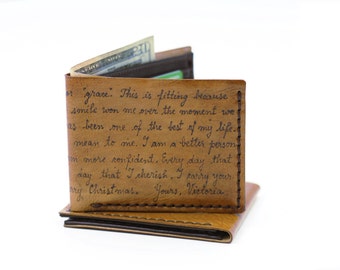 20
"grace". This is fitting because
smile won me over the moment we
as been one of the best of my life.
mean to me. I am a better person
m more confident. Every day that
day that I cherish. I carry your
ry Christmas. Yours, Victoria